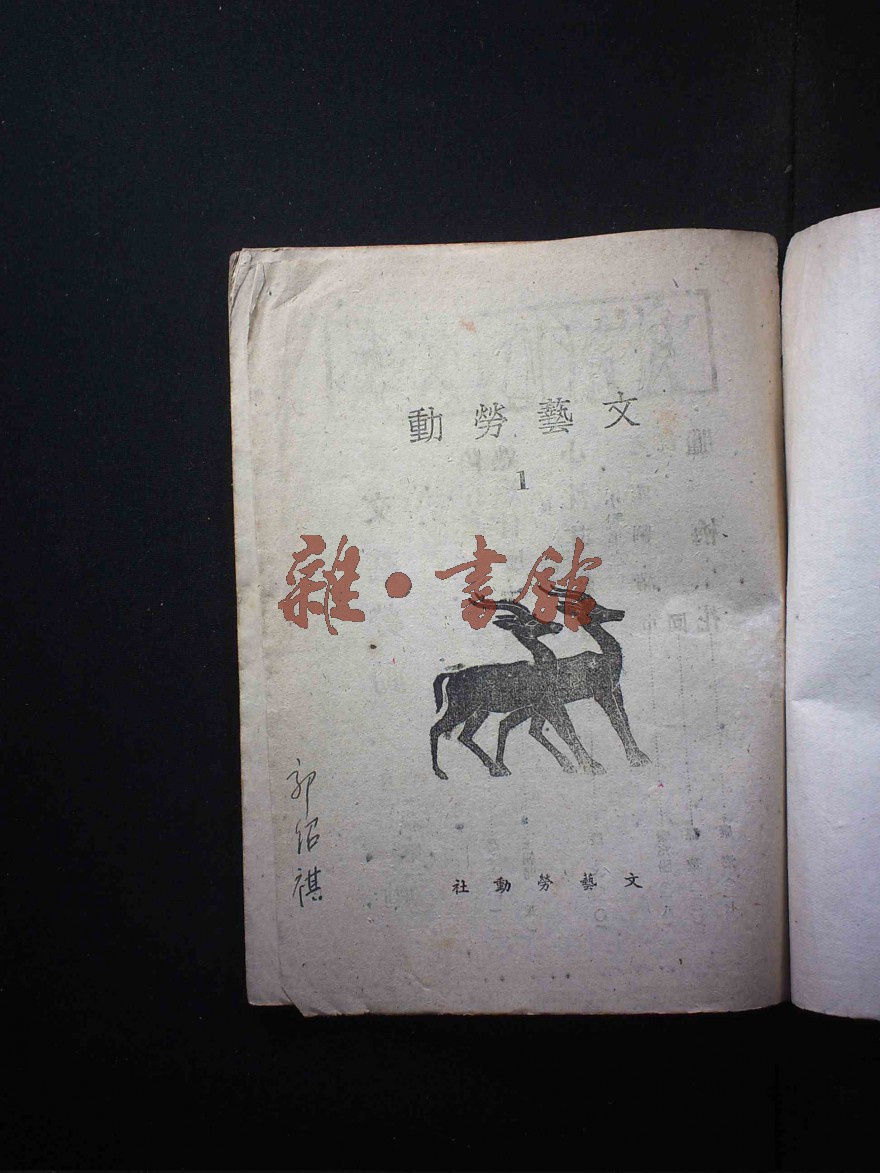 文藝勞動
1
雜·書館
郭紹祺
文藝勞動社